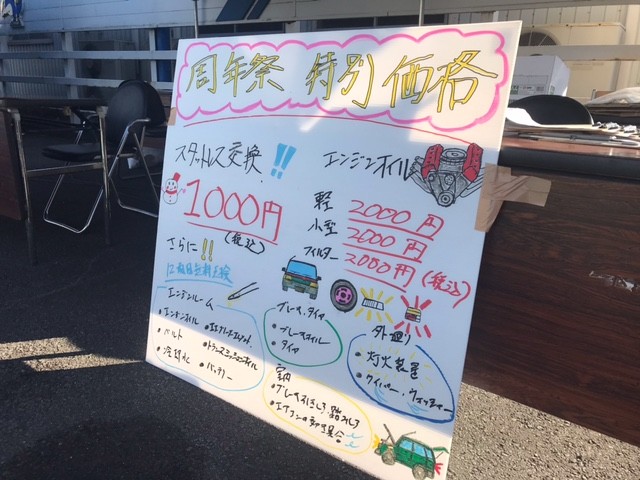 周年祭 特別価格
スタットレス交換!!
1000円
(税込)
エンジンオイル
軽 2000円
小型 2000円
フィルター 2000円(税込)
さらに!!
12ヶ所無料点検
エンジンルーム
・エンジンオイル
・ベルト
・冷却水
・トランスミッションオイル
・バッテリー
ブレーキ、タイヤ
・ブレーキオイル
・タイヤ
外廻り
・灯火装置
・ワイパー、ウォッシャー
室内
・ブレーキ引きしろ、踏みしろ
・エアコンの効き具合